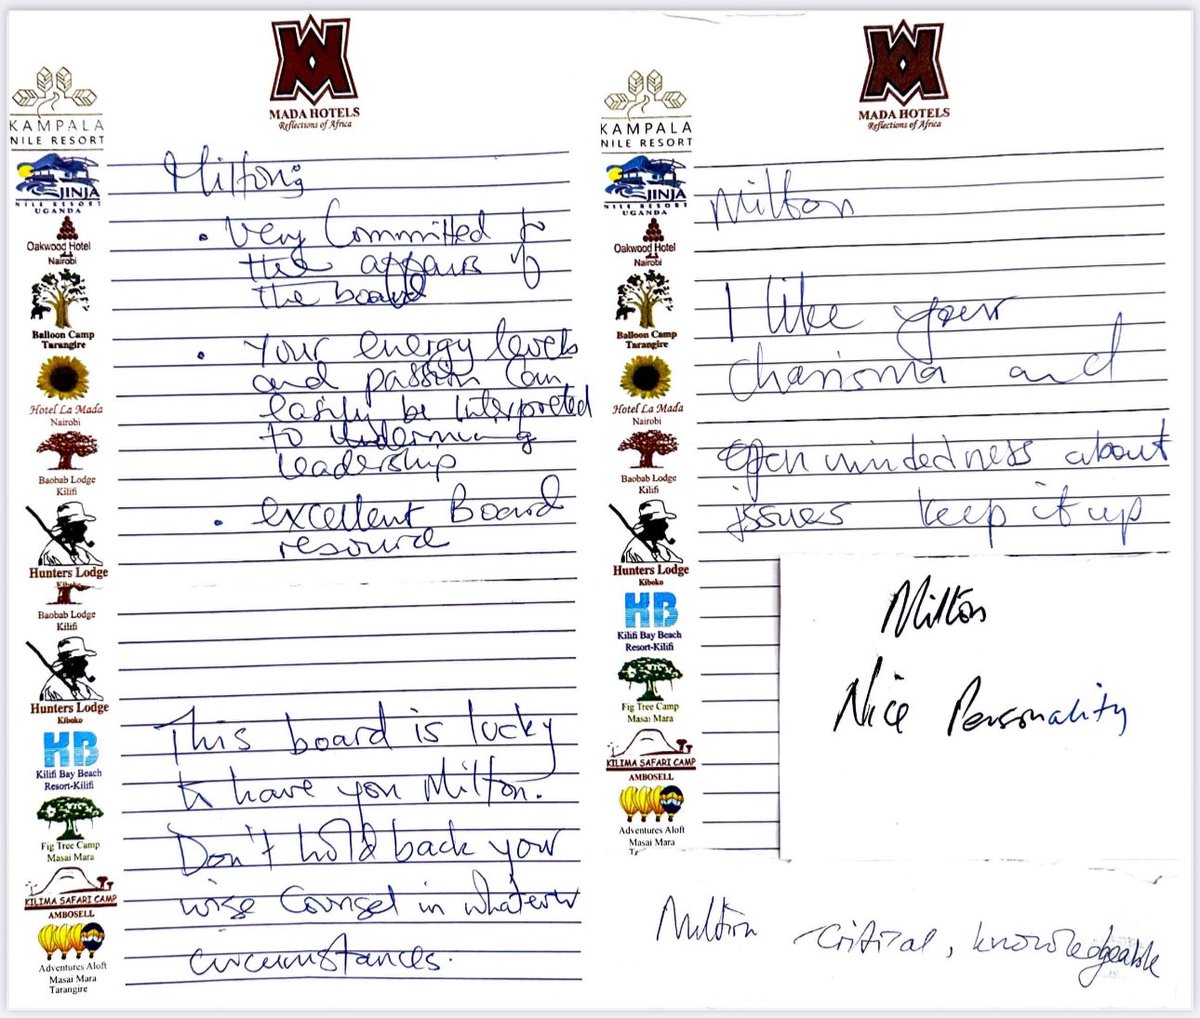 MADA HOTELS
Reflections of Africa
KAMPALA
NILE RESORT
JINJA
NILE RESORT
UGANDA
Oakwood Hotel
Nairobi
Balloon Camp
Tarangire
Hotel La Mada
Nairobi
Baobab Lodge
Kilifi
Hunters Lodge
Kiboko
Milton:
• Very Committed to
the affairs of
the board
• Your energy levels
and passion can
easily be interpreted
to undermining
leadership
• excellent Board
resource
Baobab Lodge
Kilifi
Hunters Lodge
Kiboko
HB
Kilifi Bay Beach
Resort-Kilifi
Fig Tree Camp
Masai Mara
KILIMA SAFARI CAMP
AMBOSELL
Adventures Aloft
Masai Mara
Tarangire
This board is lucky
to have you Milton.
Don't hold back your
wise Counsel in whatever
circumstances.
MADA HOTELS
Reflections of Africa
KAMPALA
NILE RESORT
JINJA
NILE RESORT
UGANDA
Oakwood Hotel
Nairobi
Balloon Camp
Tarangire
Hotel La Mada
Nairobi
Baobab Lodge
Kilifi
Hunters Lodge
Kiboko
HB
Kilifi Bay Beach
Resort-Kilifi
Fig Tree Camp
Masai Mara
KILIMA SAFARI CAMP
AMBOSELL
Adventures Aloft
Masai Mara
Milton
I like your
charisma and
open mindedness about
issues keep it up
Milton
Nice Personality
Milton - critical, knowledgeable